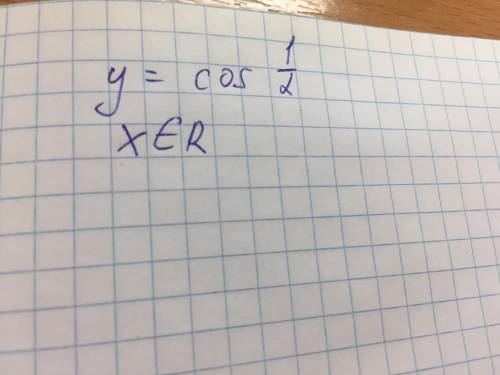 y = cos 1/2
x ∈ R